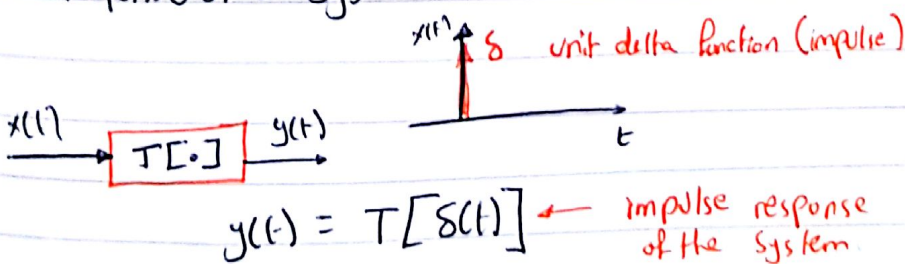 x(t) δ unit delta function (impulse)
x(t) T[.] y(t)
t
y(t) = T[δ(t)] ← impulse response
of the system